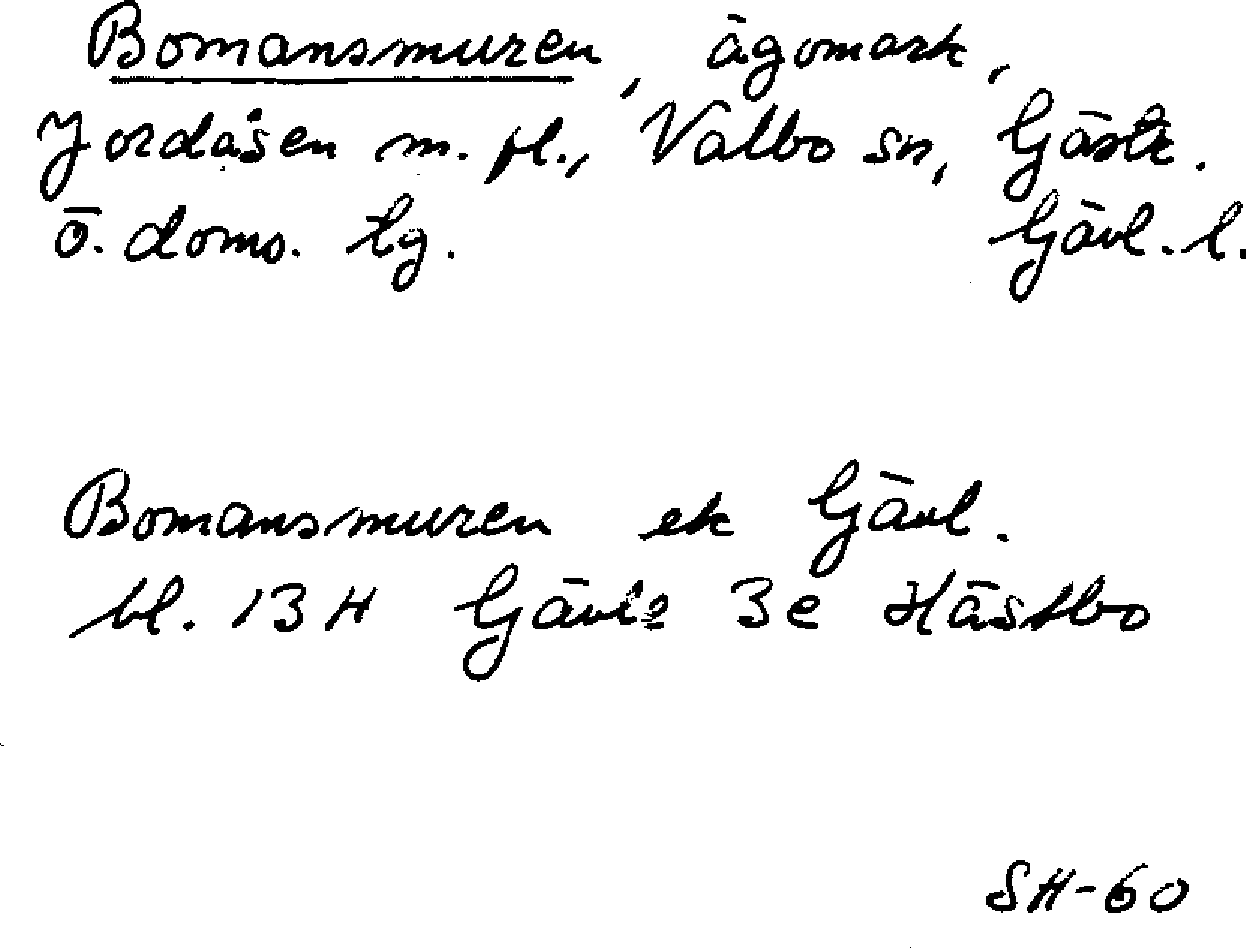 Bomansmuren, ägomark,
Jordåsen m. fl., Valbo sn, Gästr.
Ö. doms. tg. Gävl. l.
Bomansmuren ek Gävl.
bl. 13 H Gävle 3e Hästbo
SH-60